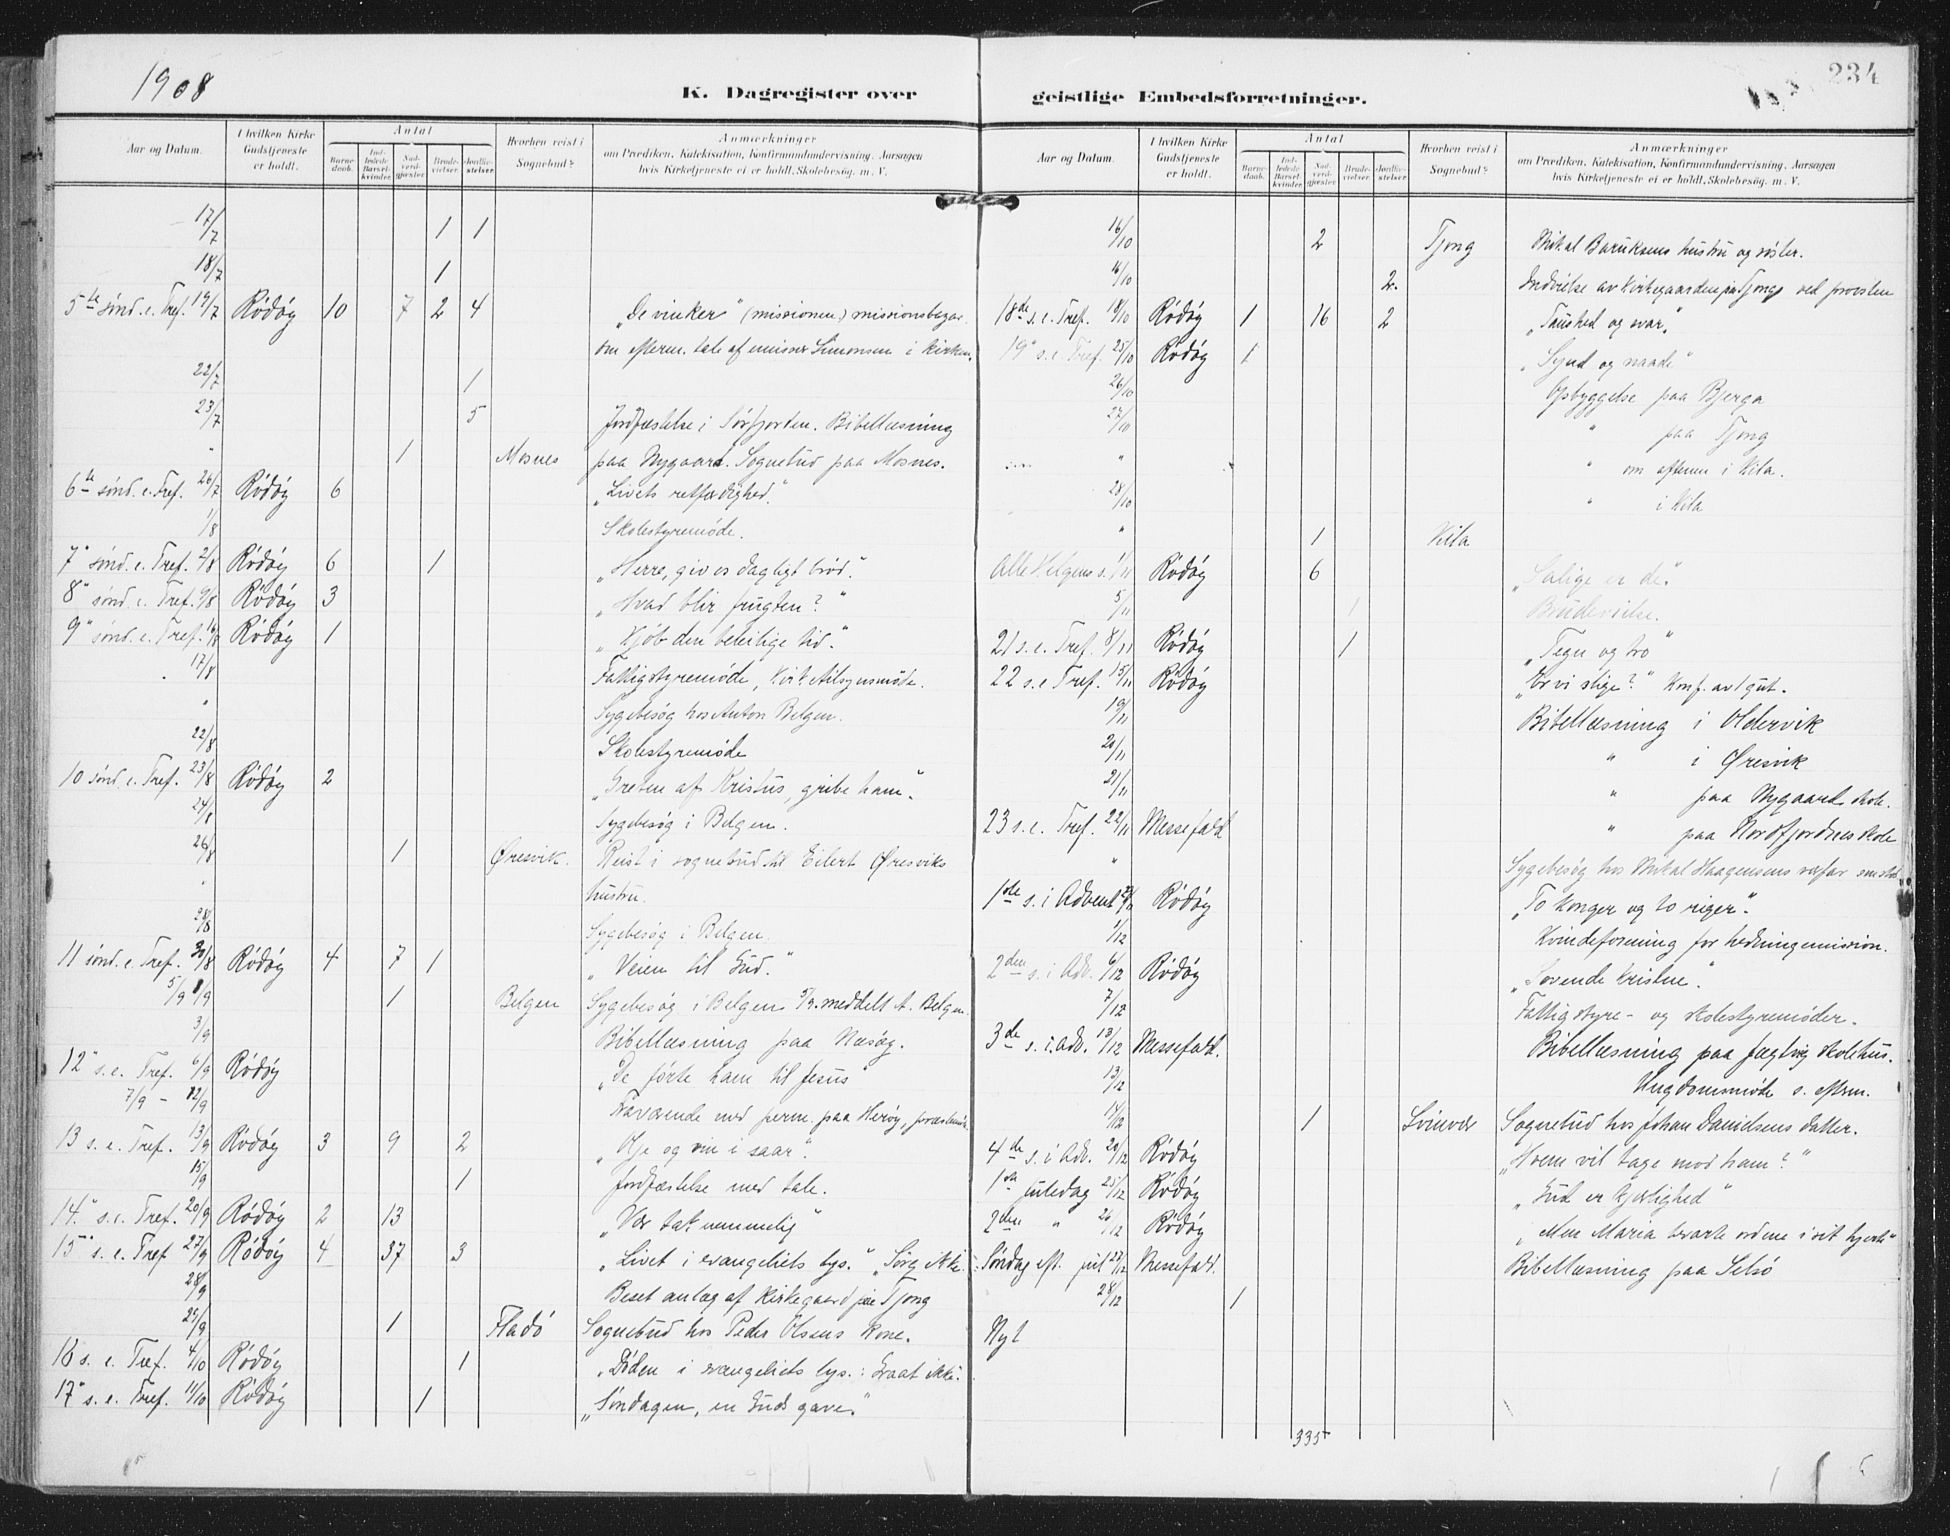 1908
K. Dagregister over
Aar og Datum.
I hvilken Kirke Gudstjeneste er holdt.
Antal
Barne- daab.
Ind- ledede Barsel- kvinder.
Nad- verd- gjæster.
Brude- vielser.
Jordfæ- stelser.
Hvorhen reist i Sognebud?
Anmærkninger
om Prædiken, Katekisation, Konfirmandundervisning, Aarsagen
hvis Kirketjeneste ei er holdt, Skolebesøg. m. V.
17/7 1 1
18/7 1
5te sønd. e. Tref. 19/7 Rödöy 10 7 2 4 "De vinker" (missionen) missionsbazar
om efterm. tale af emissær Simonsen i kirken.
22/7 1
23/7 5 Jordfæstelse i Sörfjorden. Bibellæsning
" 1 Mosnes paa Nygaard. Sognebud paa Mosnes.
6te sønd. e. Tref. 26/7 Rödöy 6 "Livets retfærdighed."
1/8 Skolestyremøde.
7" sønd. e. Tref. 2/8 Rödöy 6 1 "Herre, giv os dagligt brød".
8" sønd. e. Tref. 9/8 Rödöy 3 "Hvad blir frugten?"
9" sønd. e. Tref. 16/8 Rödöy 1 "Kjøb den beleilige tid."
17/8 Fattigstyremøde, Kirketilsynsmøde.
" Sygebesøg hos Anton Belgen.
22/8 Skolestyremøde
10 sønd. e. Tref. 23/8 Rödöy 2 "Greten af Kristus, gribe ham".
24/8 Sygebesøg i Belgen.
26/8 1 Øresvik. Reist i sognebud til Eilert Øresviks
" hustru.
28/8 Sygebesøg i Belgen.
11 sønd. e. Tref. 30/8 Rödöy 4 7 1 "Veien til Gud."
5/9 8/9 1 Belgen Sygebesøg i Belgen 5/9. meddelt A. Belgen.
3/9 Bibellæsning paa Næsøy.
12" s. e. Tref. 6/9 Rödöy "De førte ham til Jesus"
7/9 - 12/9 Fraværende med perm. paa Herøy, præstemøde
13 s. e. Tref. 13/9 Rödöy 3 9 2 "Olje og vin i saar".
15/9 1 Jordfæstelse med tale.
14." s. e. Tref. 20/9 Rödöy 2 13 "Vær taknemmelig"
15" s. e. Tref 27/9 Rödöy 4 37 3 "Livet i evangeliets lys." "Sørg ikke.
28/9 Beset anlæg af kirkegaard paa Tjong
29/9 1 Fladö Sognebud hos Peder Olsens kone.
16 s. e. Tref. 4/10 Rödöy 1 "Døden i evangeliets lys.: Graat ikke.
17" s. e. Tref. 11/10 Rödöy 1 "Søndagen, en Guds gave."
234
geistlige Embedsforretninger.
Aar og Datum.
I hvilken Kirke Gudstjeneste er holdt.
Antal
Barne- daab.
Ind- ledede Barsel- kvinder.
Nad- verd- gjæster.
Brude- vielser.
Jordfæ- stelser.
Hvorhen reist i Sognebud?
Anmærkninger
om Prædiken, Katekisation, Konfirmandundervisning, Aarsagen
hvis Kirketjeneste ei er holdt, Skolebesøg m. V.
16/10 2 Tjong Mikal Baruksens hustru og søster.
16/10 2. Indvielse av Kirkegaarden paa Tjong ved provsten
18de s. e. Tref. 18/10 Rödöy 1 16 2 "Taushed og svar."
19" s. e. Tref. 25/10 Rödöy 1 "Synd og naade"
26/10 Opbyggelse paa Bjerga
27/10 " paa Tjong
" " om aftenen i Kila.
28/10 " i Kila
" 1 Kila
Alle Helgens s. 1/11 Rödöy 6 "Salige er de".
5/11 1 Brudevielse.
21 s. e. Tref. 8/11 Rödöy 1 "Tegn og tro"
22 s. e Tref. 15/11 Rödöy "Er vi slige?" Konf. av 1 gut.
19/11 Bibellæsning i Oldervik
20/11 " i Øresvik
21/11 " paa Nygaard skole.
23 s. e. Tref. 22/11 Messefald " paa Nordfjordnes skole
" Sygebesøg hos Mikal Haagensens
1ste s. i Advent 29/11 Rödöy "To konger og to riger".
1/12 Kvindeforening for hedningemission.
2den s. i Adv. 6/12 Rödöy "Sovende kristne".
7/12 Fattigstyre- og skolestyremøder.
3de s. i. Adv. 13/12 Messefald. Bibellæsning paa Jægtvig skolehus.
13/12 Ungdomsmøde s. efterm.
14/12 1 Svinvær Sognebud hos Johan Danielsens datter.
4de s. i Adv. 20/12 Rödöy "Hvem vil tage mod ham?"
1ste juledag 25/12 Rödöy "Gud er kjærlighed"
2den " 26/12 Rödöy "Men Maria bevarte ordene i sit hjerte"
Søndag eft. jul 27/12 Messefald. Bibellæsning paa Selsö
28/12 1
Nyt
335